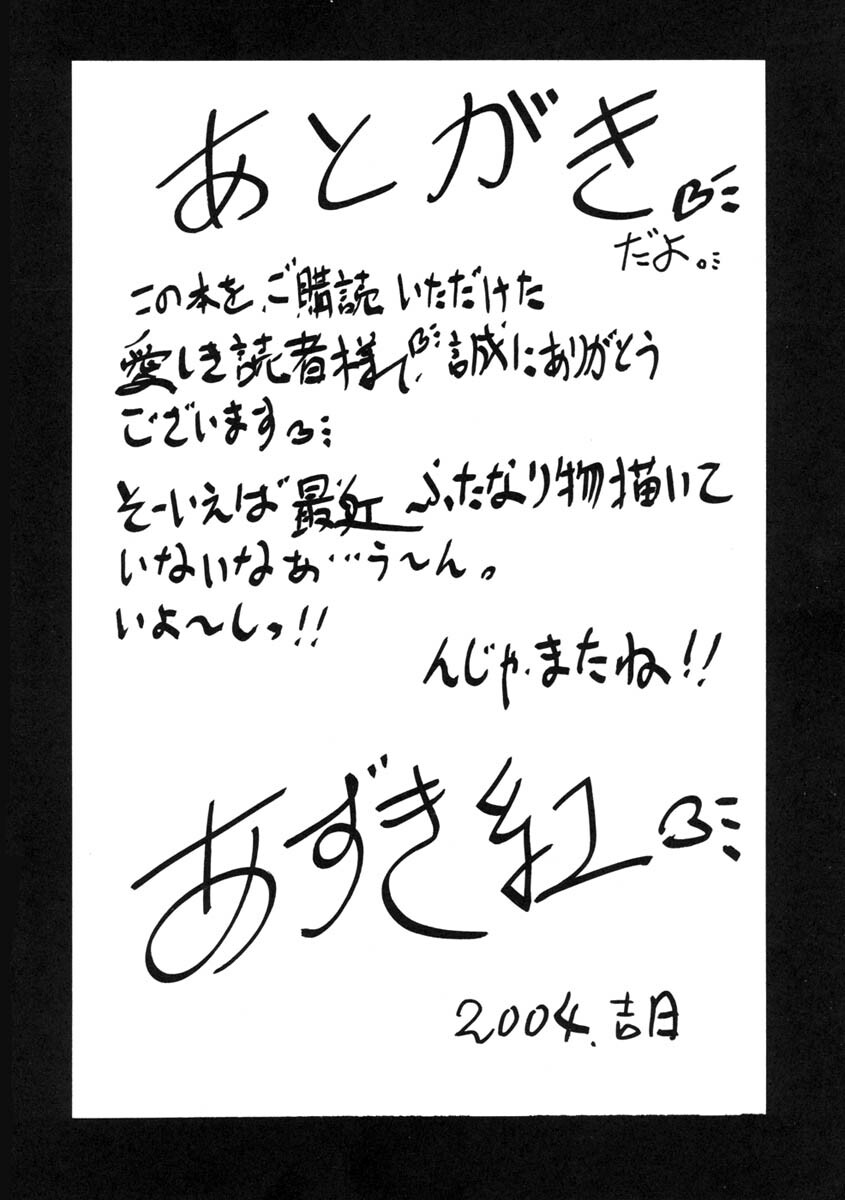 あとがき♡
だよ。
この本を、ご購読いただけた
愛しき読者様♡誠にありがとう
ございます♡
そーいえば最近ふたなり物描いて
いないなぁ…う〜ん。
いよ〜しっ!!
んじゃ、またね!!
あずき紅♡
2004.吉日